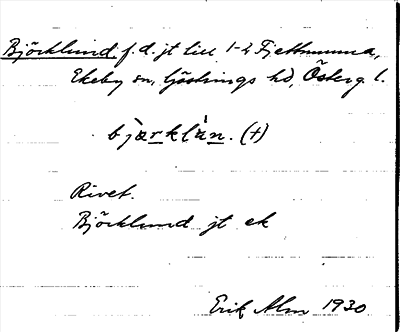 Björklund, f.d. jt till 1-2 Fjettmunna,
Ekeby sn, Göstrings hd, Österg. l.
bjärklàn. (+)
Rivet.
Björklund jt ek
Erik Alm 1930